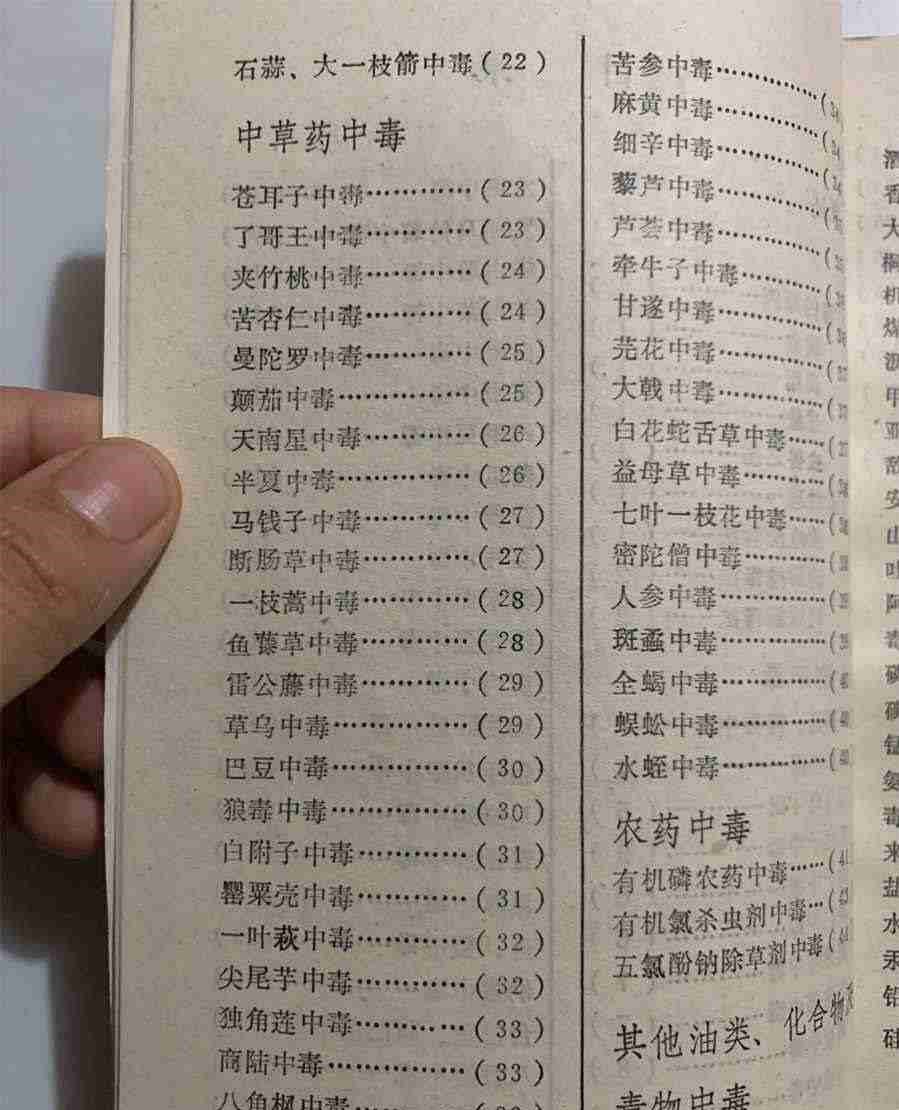 石蒜、大一枝箭中毒(22)
中草药中毒
苍耳子中毒…………(23)
了哥王中毒…………(23)
夹竹桃中毒…………(24)
苦杏仁中毒…………(24)
曼陀罗中毒…………(25)
颠茄中毒……………(25)
天南星中毒…………(26)
半夏中毒……………(26)
马钱子中毒…………(27)
断肠草中毒…………(27)
一枝蒿中毒…………(28)
鱼藤草中毒…………(28)
雷公藤中毒…………(29)
草乌中毒……………(29)
巴豆中毒……………(30)
狼毒中毒……………(30)
白附子中毒…………(31)
罂粟壳中毒…………(31)
一叶萩中毒…………(32)
尖尾芋中毒…………(32)
独角莲中毒…………(33)
商陆中毒……………(33)
八角枫中毒
苦参中毒
麻黄中毒
细辛中毒
藜芦中毒
芦荟中毒
牵牛子中毒
甘遂中毒
芫花中毒
大戟中毒
白花蛇舌草中毒
益母草中毒
七叶一枝花中毒
密陀僧中毒
人参中毒
斑蝥中毒
全蝎中毒
蜈蚣中毒
水蛭中毒
农药中毒
有机磷农药中毒
有机氯杀虫剂中毒
五氯酚钠除草剂中毒
其他油类、化合物
毒物中毒